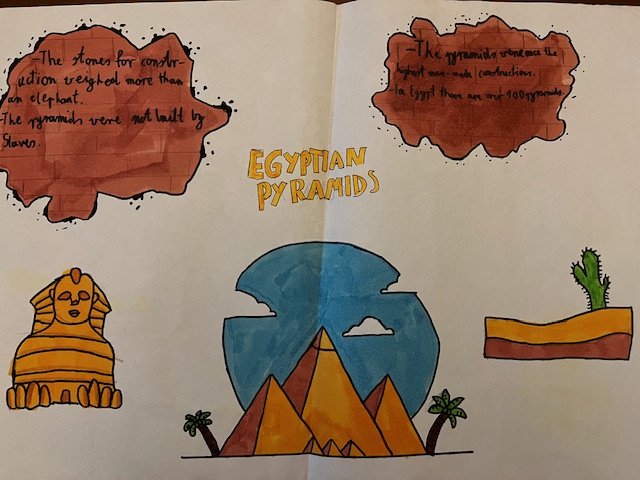 -The stones for constr-
uction weighed more than
an elephant.
-The pyramids were not built by
Slaves.
-The pyramids were once the
highest man-made constructions.
-In Egypt there are over 100 pyramids.
EGYPTIAN
PYRAMIDS